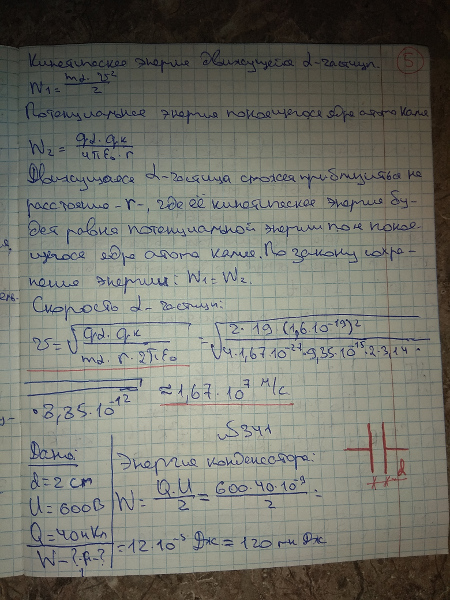 Кинетическая энергия движущейся α-частицы
5
W₁ = mα · v² / 2
Потенциальная энергия покоящегося ядра атома калия
W₂ = qα · qк / 4πε₀ · r
Движущаяся α-частица сможет приблизиться на
расстояние -r-, где её кинетическая энергия бу-
дет равна потенциальной энергии поля покоя-
щегося ядра атома калия. По закону сохра-
нения энергии: W₁ = W₂
Скорость α-частицы:
v = √(qα · qк / mα · r · 2π·ε₀) = √(2 · 19 (1,6·10⁻¹⁹)² / 4·1,67·10⁻²⁷·9,35·10⁻¹⁵·2·3,14 ·
· 8,85·10⁻¹² ≈ 1,67 · 10⁷ м/с
№341
Дано:
d = 2 см
U = 600В
Q = 40нКл
W - ? A - ?
Энергия конденсатора:
W = Q·U / 2 = 600·40·10⁻⁹ / 2 =
= 12·10⁻⁶ Дж =
d